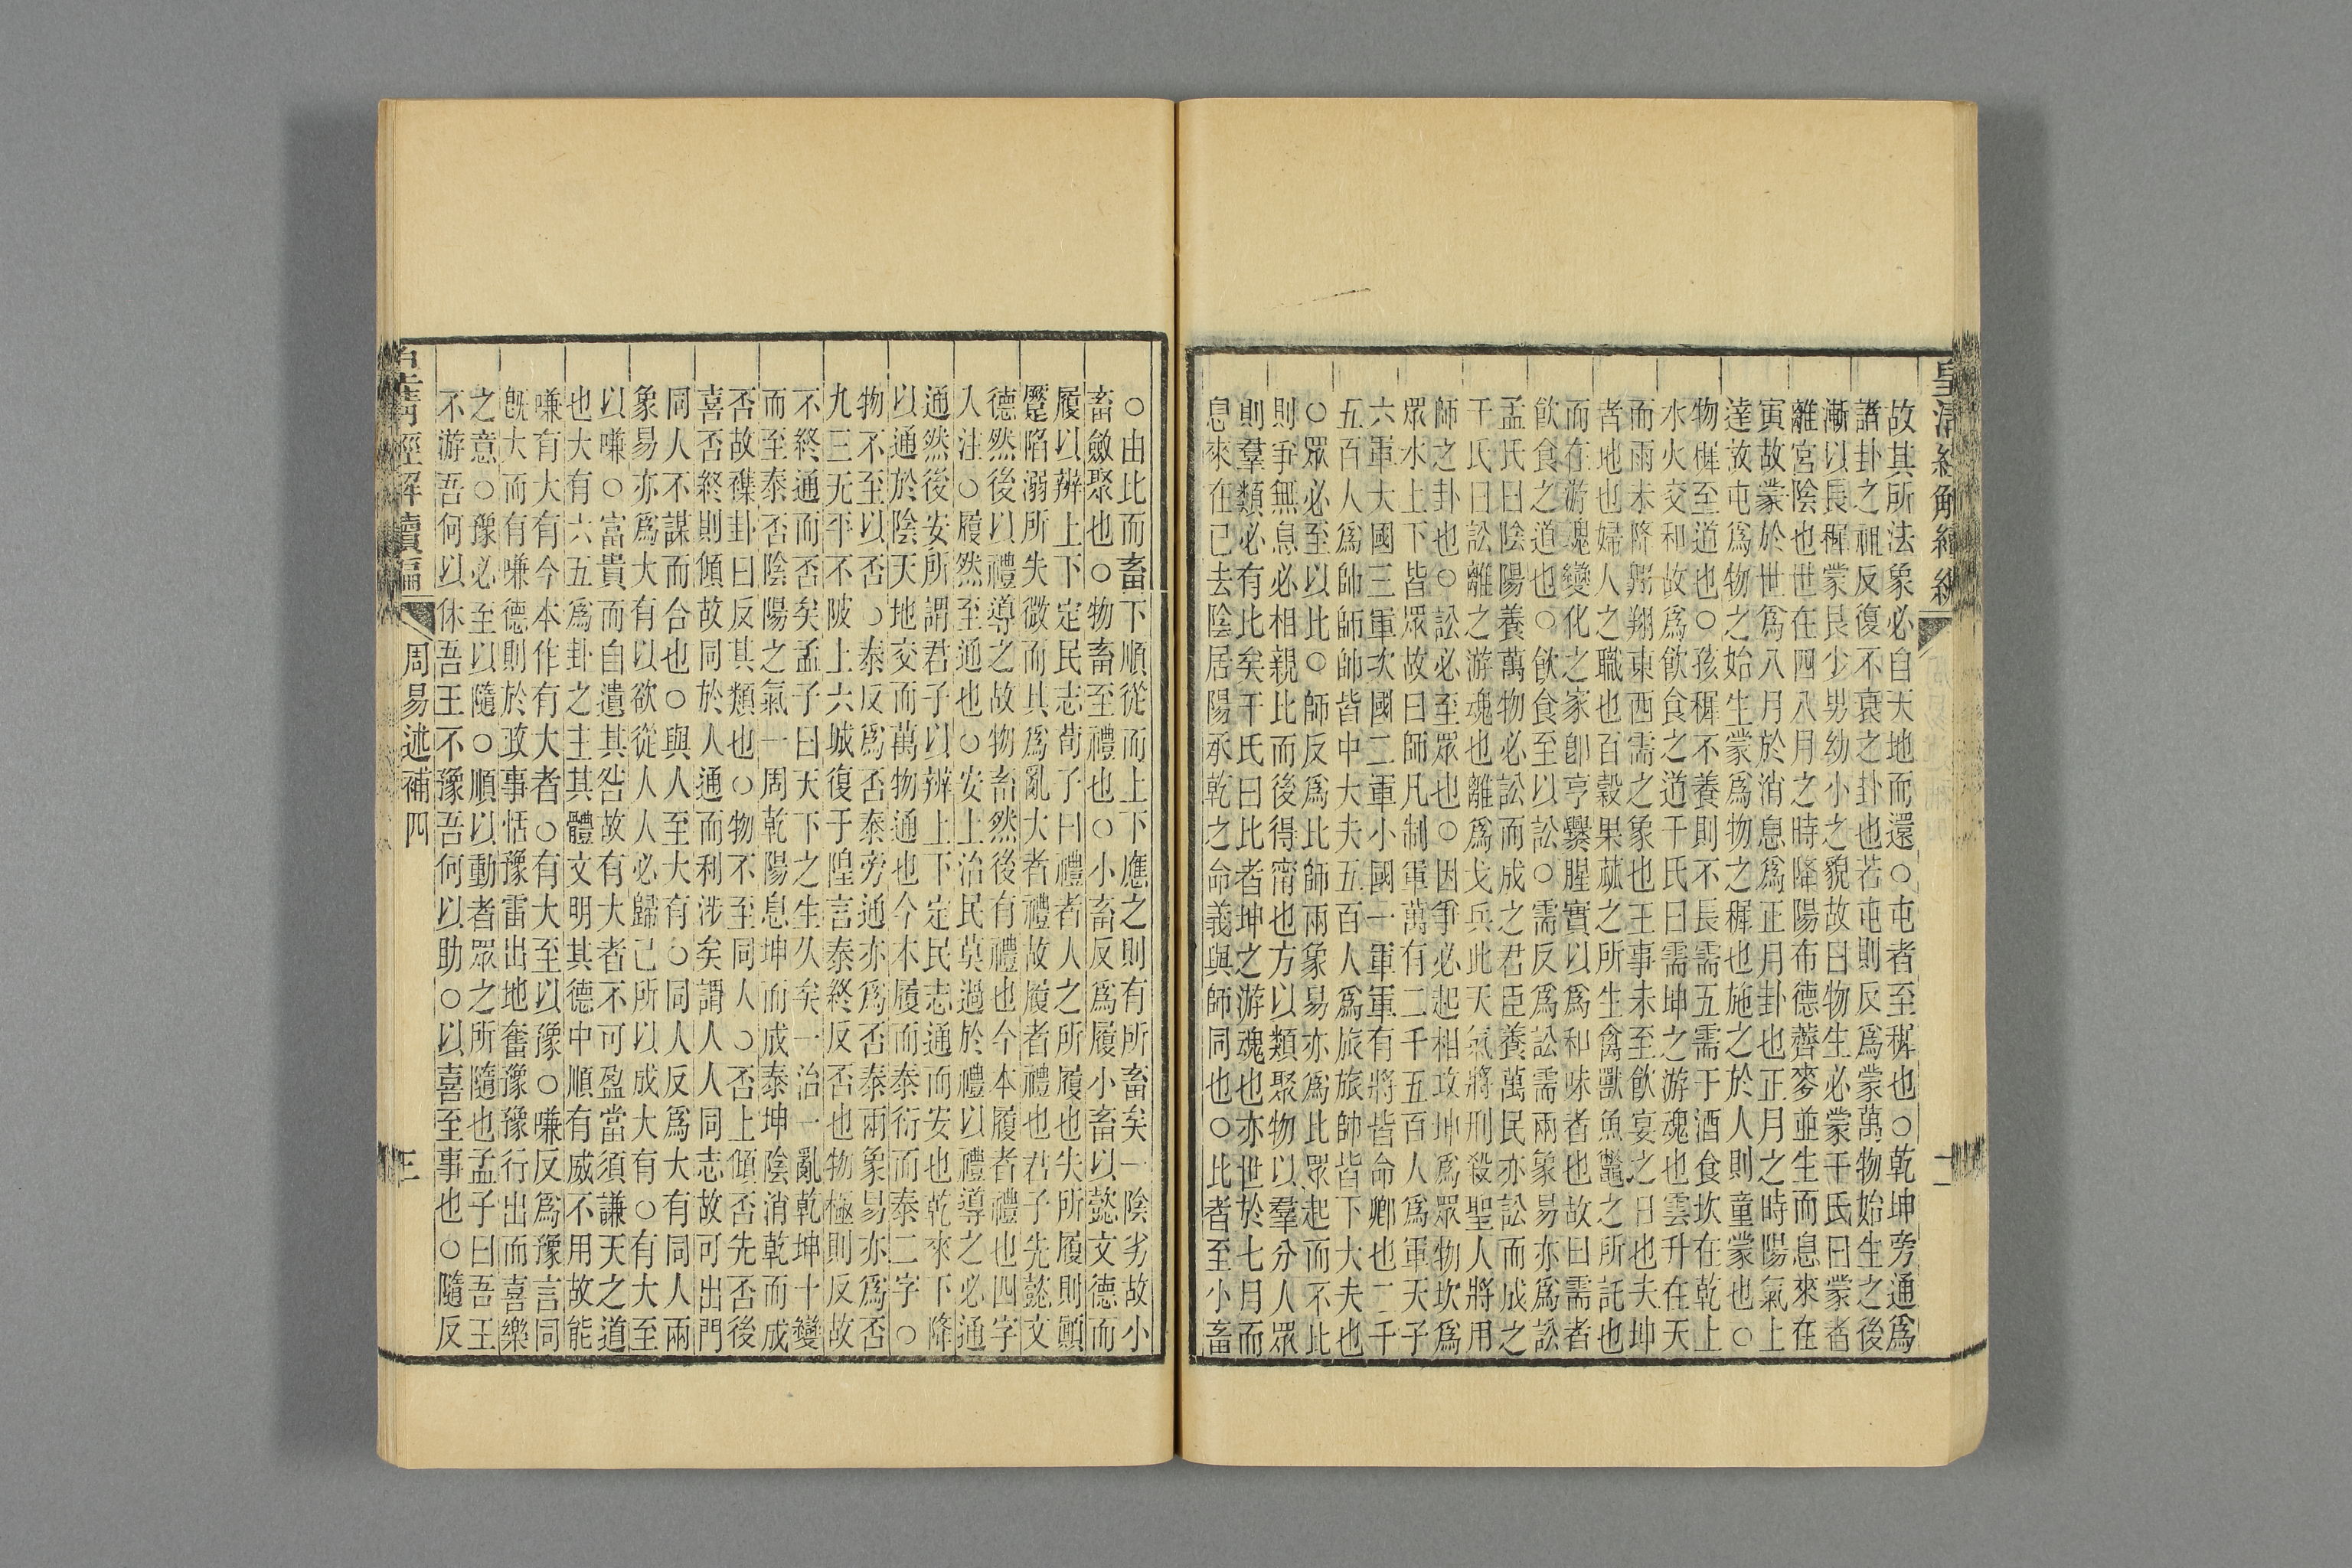 皇清經解續編
二
故其所法象必自天地而還○屯者至穉也○乾坤旁通爲
諸卦之祖反復不衰之卦也若屯則反爲蒙萬物始生之後
漸以長穉蒙艮少男幼小之貌故曰物生必蒙干氏曰蒙者
離宮陰也世在四八月之時降陽布德薺麥並生而息來在
寅故蒙於世爲八月於消息爲正月卦也正月之時陽氣上
達故屯爲物之始生蒙爲物之穉也施之於人則童蒙也○
物穉至道也○孩穉不養則不長需五需于酒食坎在乾上
水火交和故爲飮食之道干氏曰需坤之游魂也雲升在天
而雨未降翺翔東西需之象也王事未至飮宴之日也夫坤
者地也婦人之職也百穀果蓏之所生禽獸魚鼈之所託也
而在游魂變化之家卽亨爨腥實以爲和味者也故曰需者
飮食之道也○飮食至以訟○需反爲訟需兩象易亦爲訟
孟氏曰陰陽養萬物必訟而成之君臣養萬民亦訟而成之
干氏曰訟離之游魂也離爲戈兵此天氣將刑殺聖人將用
師之卦也○訟必至眾也○因爭必起相攻坤爲眾物坎爲
眾水上下皆眾故曰師凡制軍萬有二千五百人爲軍天子
六軍大國三軍次國二軍小國一軍軍有將皆命卿也二千
五百人爲師師帥皆中大夫五百人爲旅旅帥皆下大夫也
○眾必至以比○師反爲比師兩象易亦爲比眾起而不比
則爭無息必相親比而後得甯也方以類聚物以羣分人眾
則羣類必有比矣干氏曰比者坤之游魂也亦世於七月而
息來在已去陰居陽承乾之命義與師同也○比者至小畜
○由比而畜下順從而上下應之則有所畜矣一陰劣故小
畜斂聚也○物畜至禮也○小畜反爲履小畜以懿文德而
履以辨上下定民志荀子曰禮者人之所履也失所履則顚
蹷陷溺所失微而其爲亂大者禮故履者禮也君子先懿文
德然後以禮導之故物畜然後有禮也今本履者禮也四字
入注○履然至通也○安上治民莫過於禮以禮導之必通
通然後安所謂君子以辨上下定民志通而安也乾來下降
以通於陰天地交而萬物通也今本履而泰衍而泰二字○
物不至以否○泰反爲否泰旁通亦爲否泰兩象易亦爲否
九三无平不陂上六城復于隍言泰終反否也物極則反故
不終通而否矣孟子曰天下之生久矣一治一亂乾坤十變
而至泰否陰陽之氣一周乾陽息坤而成泰坤陰消乾而成
否故襍卦曰反其類也○物不至同人○否上傾否先否後
喜否終則傾故同於人通而利涉矣謂人人同志故可出門
同人不謀而合也○與人至大有○同人反爲大有同人兩
象易亦爲大有以欲從人人必歸己所以成大有○有大至
以嗛○富貴而自遺其咎故有大者不可盈當須謙天之道
也大有六五爲卦之主其體文明其德中順有威不用故能
嗛有大有今本作有大者○有大至以豫○嗛反爲豫言同
旣大而有嗛德則於政事恬豫雷出地奮豫豫行出而喜樂
之意○豫必至以隨○順以動者眾之所隨也孟子曰吾王
不游吾何以休吾王不豫吾何以助○以喜至事也○隨反
皇清經解續編
周易述補四
三